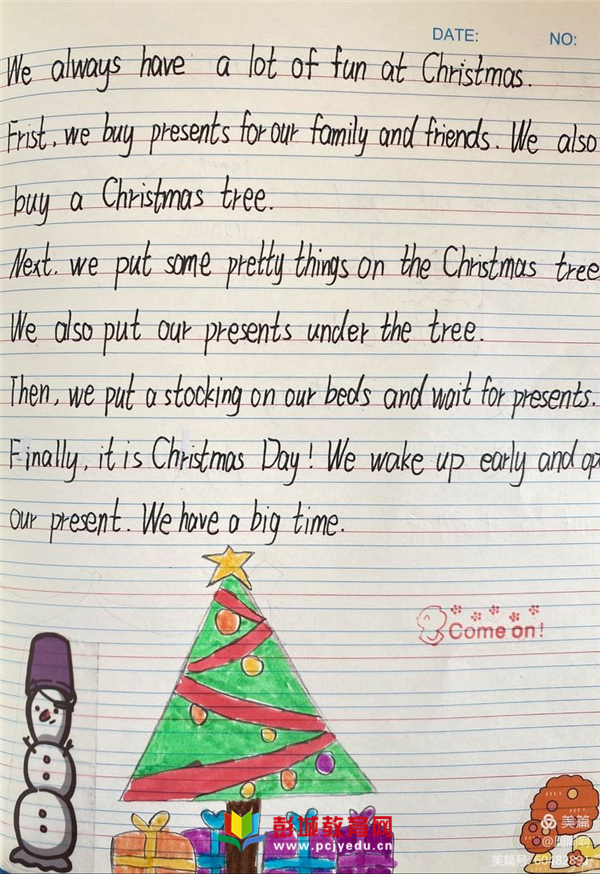 DATE:
NO:
We always have a lot of fun at Christmas.
Frist, we buy presents for our family and friends. We also
buy a Christmas tree.
Next. we put some pretty things on the Christmas tree
We also put our presents under the tree.
Then, we put a stocking on our beds and wait for presents.
Finally, it is Christmas Day! We wake up early and op
our present. We have a big time.
Come on!
彭城教育网
www.pcjyedu.cn
美篇
美篇号